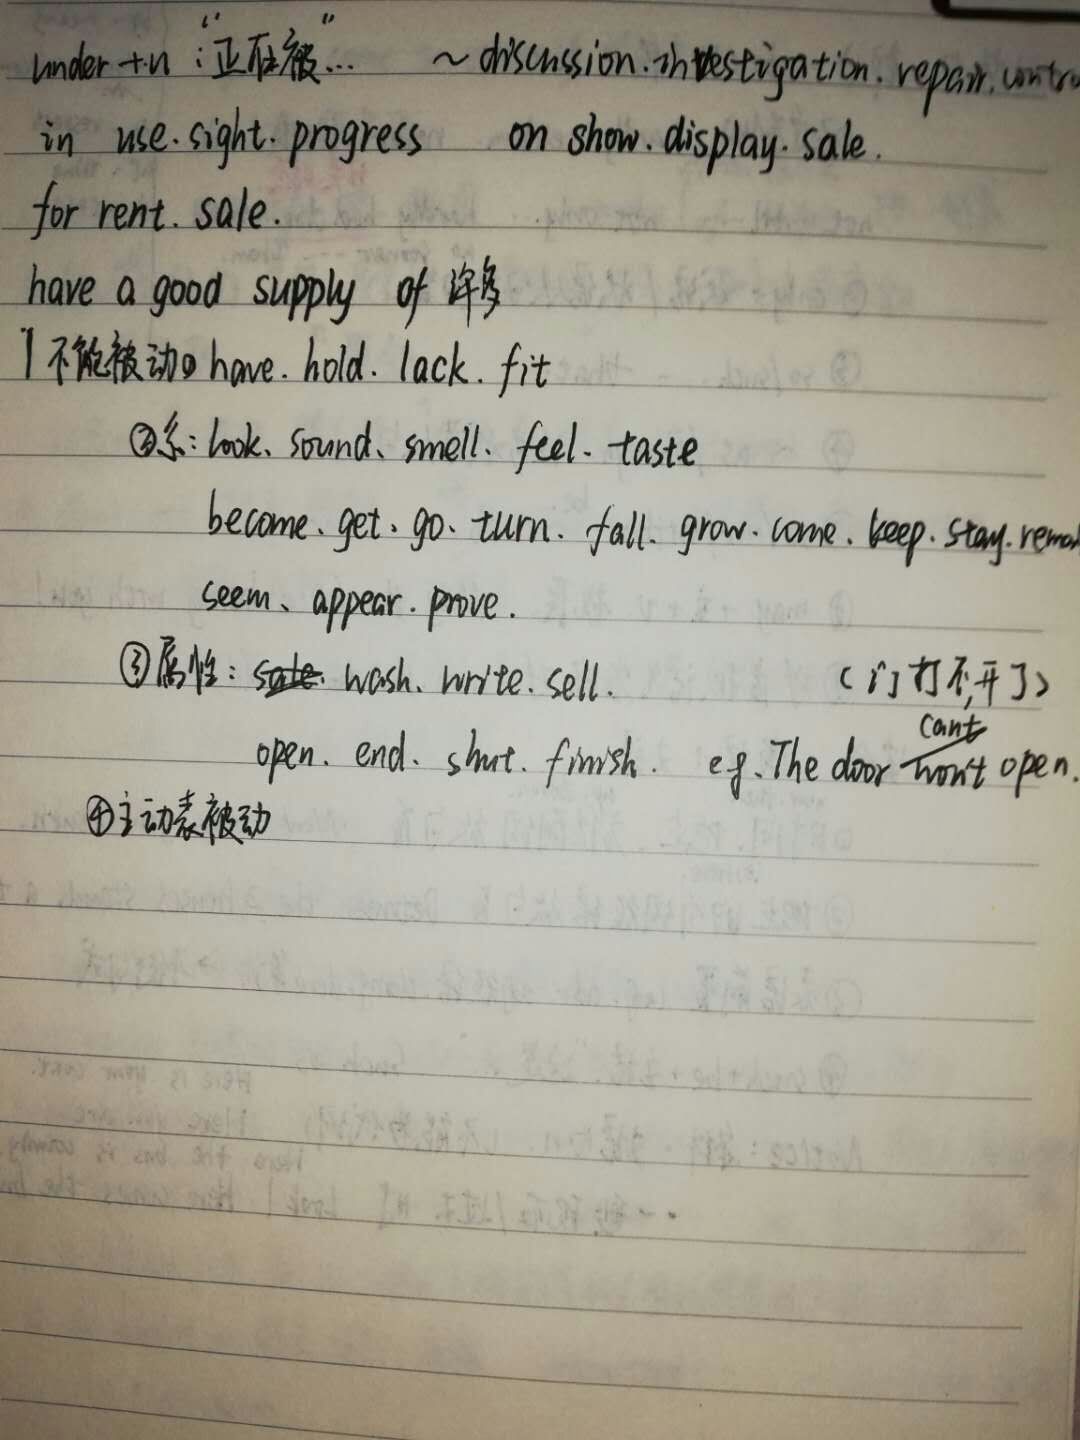 under +n :“正在被”... ~ discussion.investigation.repair.contro
in use.sight.progress on show.display.sale.
for rent.sale.
have a good supply of 许多
1不能被动①have.hold.lack.fit
②系:look、sound、smell.feel.taste
become、get、go.turn.fall.grow.come.keep.stay.remai
seem、appear.prove.
③属性:wash、write.sell. (门打不开了)
cant
open.end.shut.finish. eg.The door won't open.
④主动表被动